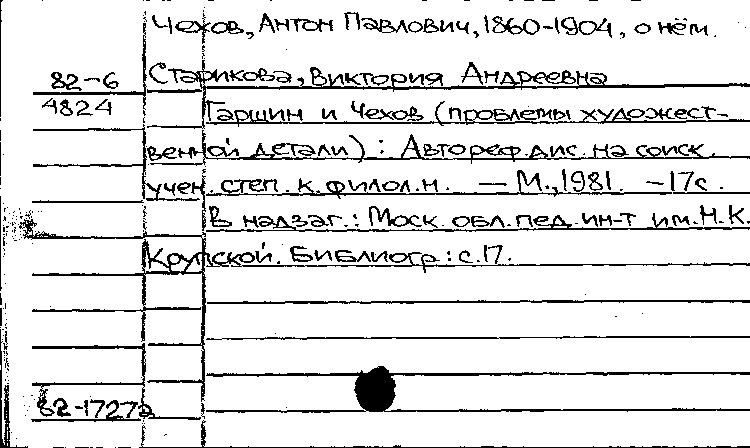 Чехов, Антон Павлович, 1860-1904, о нём.
82-6 Старикова, Виктория Андреевна
4824 Гаршин и Чехов (проблемы художест-
венной детали): Автореф. дис. на соиск.
учен. степ. к. филол. н. — М., 1981. -17с.
В надзаг.: Моск. обл. пед. ин-т им. Н.К.
Крупской. Библиогр: с.17.
82-17272